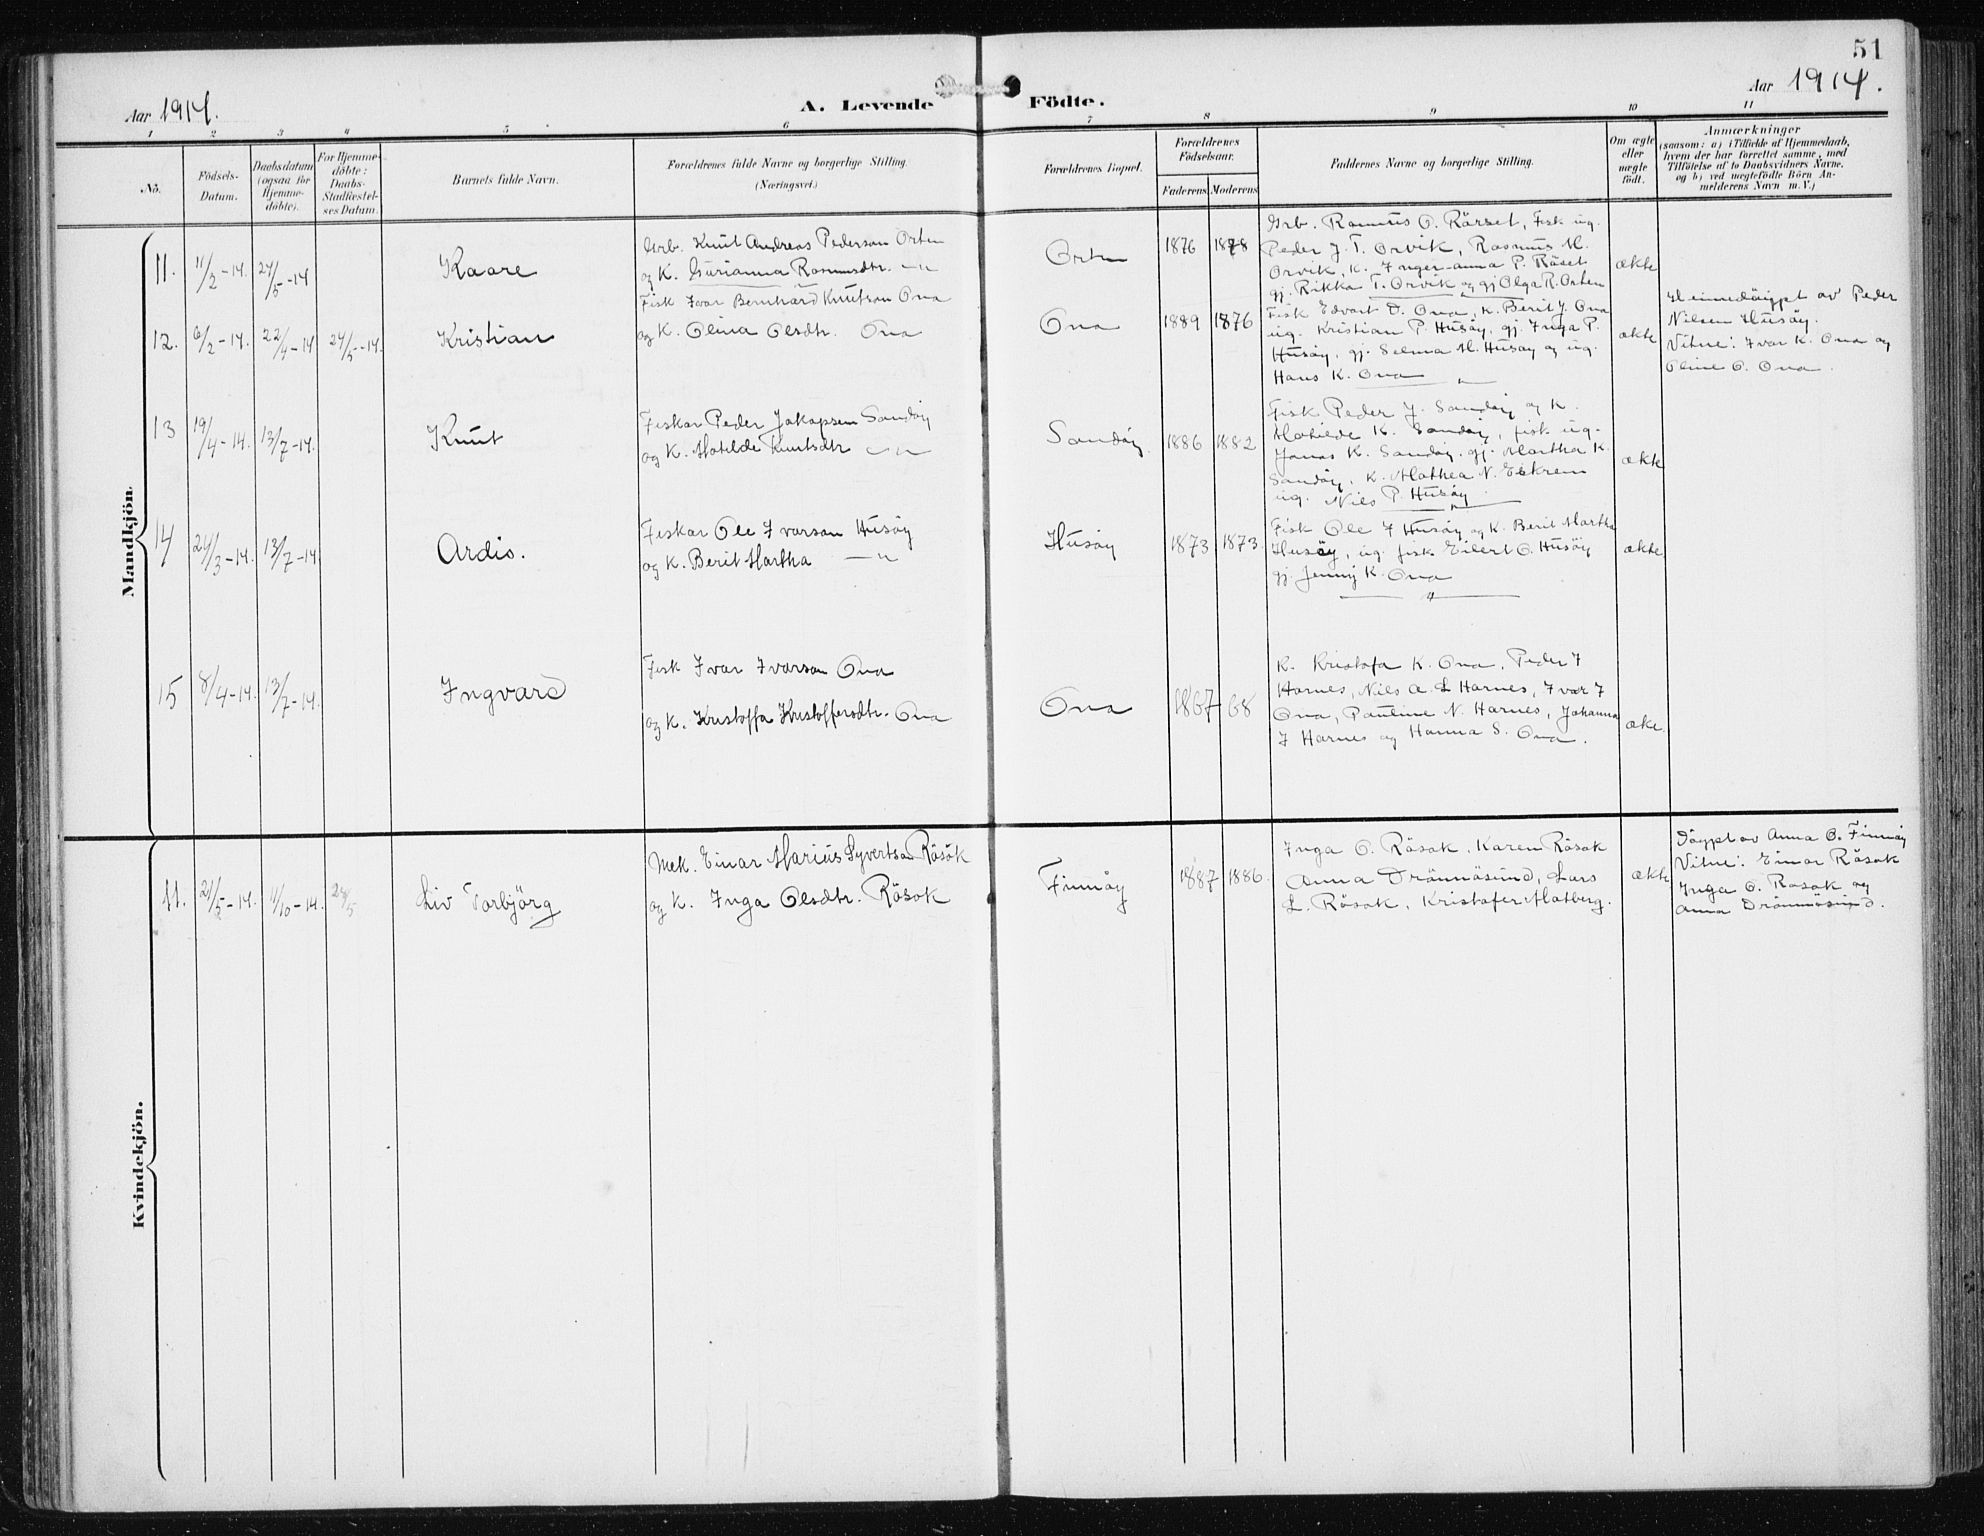 51
Aar 1914.
A. Levende Födte.
Aar 1914.
1 2 3 4 5 6 7 8 9 10 11
No.
Födsels-
Datum.
Daabsdatum
(ogsaa for
Hjemme-
döbte).
For Hjemme-
döbte:
Daabs-
Stadfæstel-
ses Datum.
Barnets fulde Navn.
Forældrenes fulde Navne og borgerlige Stilling.
(Næringsvei.)
Forældrenes Bopæl.
Forældrenes
Födselsaar.
Faderens Moderens
Faddernes Navne og borgerlige Stilling.
Om ægte
eller
uægte
födt.
Anmærkninger
(saasom: a) i Tilfælde af Hjemmedaab,
hvem der har forrettet samme, med
Tilföielse af to Daabsvidners Navne.
og b) ved uegtefödte Börn An-
melderens Navn m. V.)
Mandkjön.
11. 11/2-14. 24/5-14 Kaare
Grb. Knut Andreas Pederson Orten
og K. Gurianna Rasmusdtr. — " —
Orten 1876 1878
Grb. Rasmus O. Rärset, Fisk ug.
Peder J. T. Orvik, Rasmus M.
Orvik, K. Inger-anna P. Räset
gj. Rikka T. Orvik og gj Olga R. Orten
ækte
12. 6/2-14. 22/4-14 24/5-14. Kristian
Fisk Ivar Bernhard Knutson Ona
og K. Olina Olsdtr. Ona
Ona 1889 1876
Fisk Edvart D. Ona, K. Berit J. Ona
ug. Kristian P. Husöy, gj. Inga P.
Husöy, gj. Selma M. Husöy og ug.
Hans K. Ona
ækte
Heimedöypt av Peder
Nilsen Husöy.
Vitne: Ivar K. Ona og
Oline O. Ona.
13 19/4-14. 13/7-14. Knut
Fiskar Peder Jakopsen Sandöy
og K. Matilde Knutsdtr — " —
Sandöy 1886 1882
Fisk Peder J. Sandöy og K.
Matilde K. Sandöy, fisk ug.
Jonas K. Sandöy. gj. Martha K.
Sandöy, K. Mathea N. Eikrem
ug. Nils P. Husöy.
ækte
14 24/3-14. 13/7-14. Ardis.
Fiskar Ole Ivarson Husöy
og K. Berit Martha — " —
Husöy 1873 1873.
Fisk Ole I Husöy og K. Berit Martha
Husöy, ug. fisk Eilert O. Husöy
gj. Jenny K. Ona
ækte
15 8/4-14. 13/7-14. Ingvard
Fisk Ivar Ivarson Ona
og K. Kristoffa Kristoffersdtr. Ona
Ona 1867 68
K. Kristofa K. Ona, Peder I
Harnes, Nils A. L Harnes, Ivar I
Ona, Pauline N. Harnes, Johanna
I Harnes og Hanna S. Ona.
ække.
Kvindekjön.
11. 21/5-14. 11/10-14. 24/5 Liv Torbjörg
Mek. Einar Marius Syvertsen Rösok
og K. Inga Olsdtr. Rösok
Finnöy 1887 1886.
Inga O. Rösok, Karen Rösok
Anna Drönnäsund, Lars
L. Rösok, Kristofer Matberg.
ækte
Döypt av Anna O. Finnöy
Vitne: Einar Rösok
Inga O. Rosok og
Anna Drönnäsund.